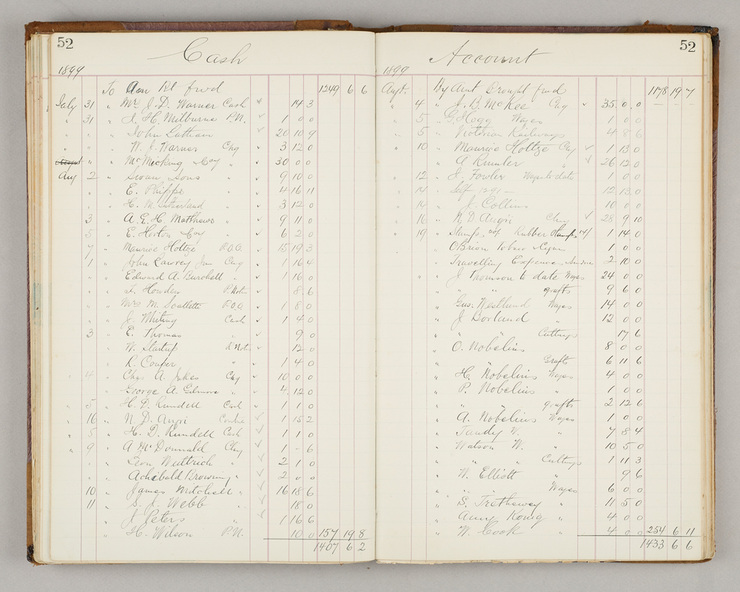 52
Cash
1899
To Am Bt fwd 1249 6 6
July 31 " Mr J. D. Warner Cash 14 3
31 " J. H. Milburne P.N. 1 0 0
" " " John 20 10 9
" " " W. J. Warner Chq 3 12 0
" " McMicking & Coy " 30 00
Aug 2 " Swan Sons " 9 10 0
" " " E. Phipps " 4 16 11
" " " H. M. Sutherland " 3 12 0
" 3 " A. E. H. Matthews " 9 11 0
" 5 " E. Hirton & Coy " 6 2 0
" 7 " Maurice Holtze P.O.O. 15 19 3
" 1 " John Lawrey Jun Chq 1 16 4
" " " Edward A. Burchett " 1 16 0
" " " P.Note 8 6
" " " Mrs M. P.O.O. 1 8 0
" " " J. Whiting Cash 1 4 0
" 3 " E. Thomas " 9 0
" " " W. P.Note 12 0
" " " R. Couper " " 1 4 0
" 4 " Chas A. Chq 10 0 0
" " " George A. " 4 12 0
" 5 " H. D. Rundell Cash 1 1 0
" 16 " N. D. 15 2
" 5 " H. D. Rundell Cash 1 1 0
" 9 " A McDonnald Chq 1 - 6
" " " " 2 1 0
" " " Browning " 2 0 0
" 10 " James " 16 18 6
" 11 " S. J. Webb " 18 0
" " " J. Peters " 1 16 6
" " " H. Wilson P.N. 10 0 157 19 8
1407 6 2
52
Account
1899
By Amt Brought fwd 1178 19 7
Augt 4 " J. D. McKee Chq 35 0 0
" 5 " G. Hogg Wages 1 0 0
" 5 " Victorian Railways 4 8 6
" 10 " Maurice Holtze Chq 1 13 0
" " " A " 26 12 0
" 12 " J. Fowler Wages to date 1 0 0
" 14 " Self 12 13 0
" 14 " J. Collins 10 0 0
" 16 " N. D. Chq 28 9 10
" 19 " Stamps Rubber Stamps 1 14 0
" O'Brien 1 0 0
" Travelling Expenses 2 10 0
" J Thomson to date Wages 24 0 0
" " " grafts 9 6 0
" Gus. Wedlund Wages 14 0 0
" J Borland " 12 0 0
" " " Cuttings 17 6
" O. Nobelius 8 0 0
" " " Graft 6 11 6
" H. Nobelius Wages 4 0 0
" P. Nobelius " 1 0 0
" " " grafts 2 12 6
" A. Nobelius Wages 1 0 0
" Tandy V. " 7 8 4
" Watson W. " 10 5 0
" " " Cuttings 1 11 3
" W. Elliott " 9 6
" " " Wages 6 0 0
" S. Tretheway " 11 5 0
" Amy " 4 0 0
" W. Cook " 4 0 0 254 6 11
1433 6 6